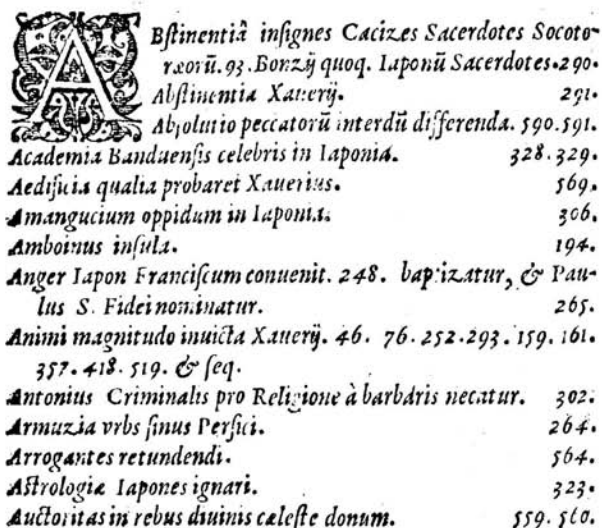 ABſtinentiâ inſignes Cacizes Sacerdotes Socoto-
ræorũ. 93. Bonzij quoq. Iaponũ Sacerdotes. 290.
Abſtinentia Xauerij. 291.
Abſolutio peccatorũ interdũ differenda. 590. 591.
Academia Banduenſis celebris in Iaponia. 328. 329.
Aedificia qualia probaret Xauerius. 569.
Amangucium oppidum in Iaponia. 306.
Amboinus inſula. 194.
Anger Iapon Franciſcum conuenit. 248. baptizatur, & Pau-
lus S. Fidei nominatur. 265.
Animi magnitudo inuicta Xauerij. 46. 76. 252. 293. 159. 161.
357. 418. 519. & ſeq.
Antonius Criminalis pro Religione à barbaris necatur. 302.
Armuzia vrbs ſinus Perſici. 264.
Arrogantes retundendi. 564.
Aſtrologiæ Iapones ignari. 323.
Auctoritas in rebus diuinis cæleſte donum. 559. 560.